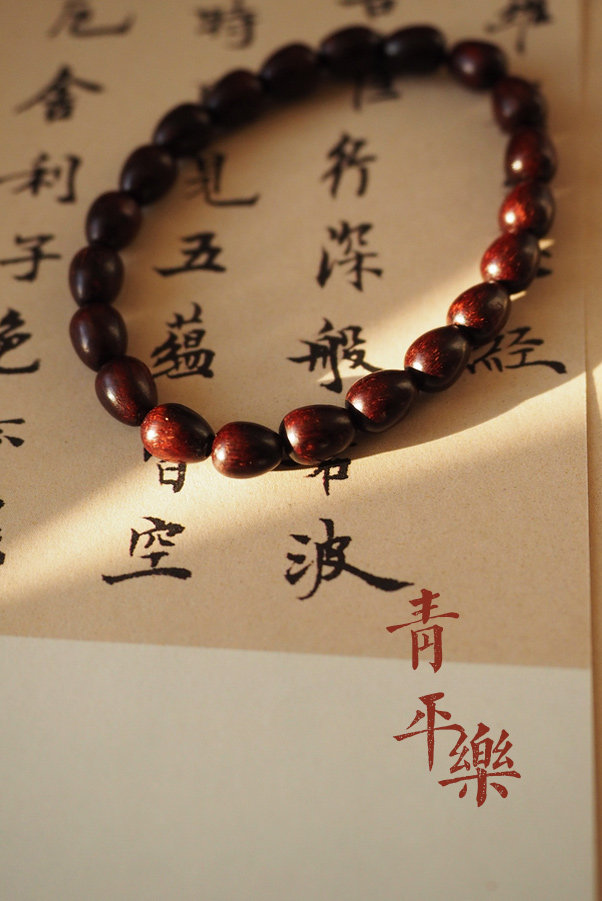 經
行深般若波
時見五蘊皆空
厄舍利子色不
青平樂